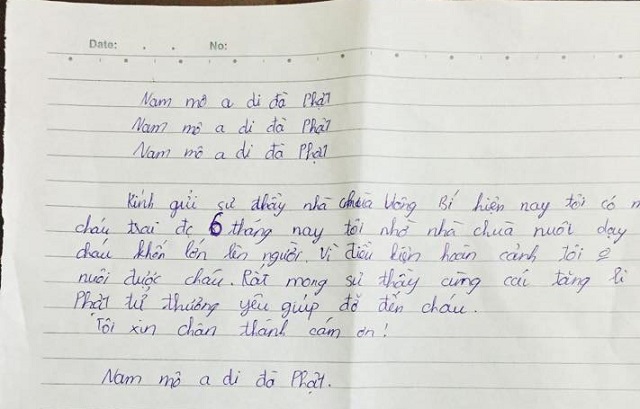 Date: . . No:
Nam mô a di đà Phật
Nam mô a di đà Phật
Nam mô a di đà Phật
Kính gửi sư thầy nhà chùa Uông Bí hiện nay tôi có m
cháu trai đc 6 tháng nay tôi nhờ nhà chùa nuôi dạy
cháu khôn lớn lên người. Vì điều kiện hoàn cảnh tôi
nuôi được cháu. Rất mong sư thầy cùng các tăng li
Phật tử thương yêu giúp đỡ đến cháu.
Tôi xin chân thành cảm ơn!
Nam mô a di đà Phật.